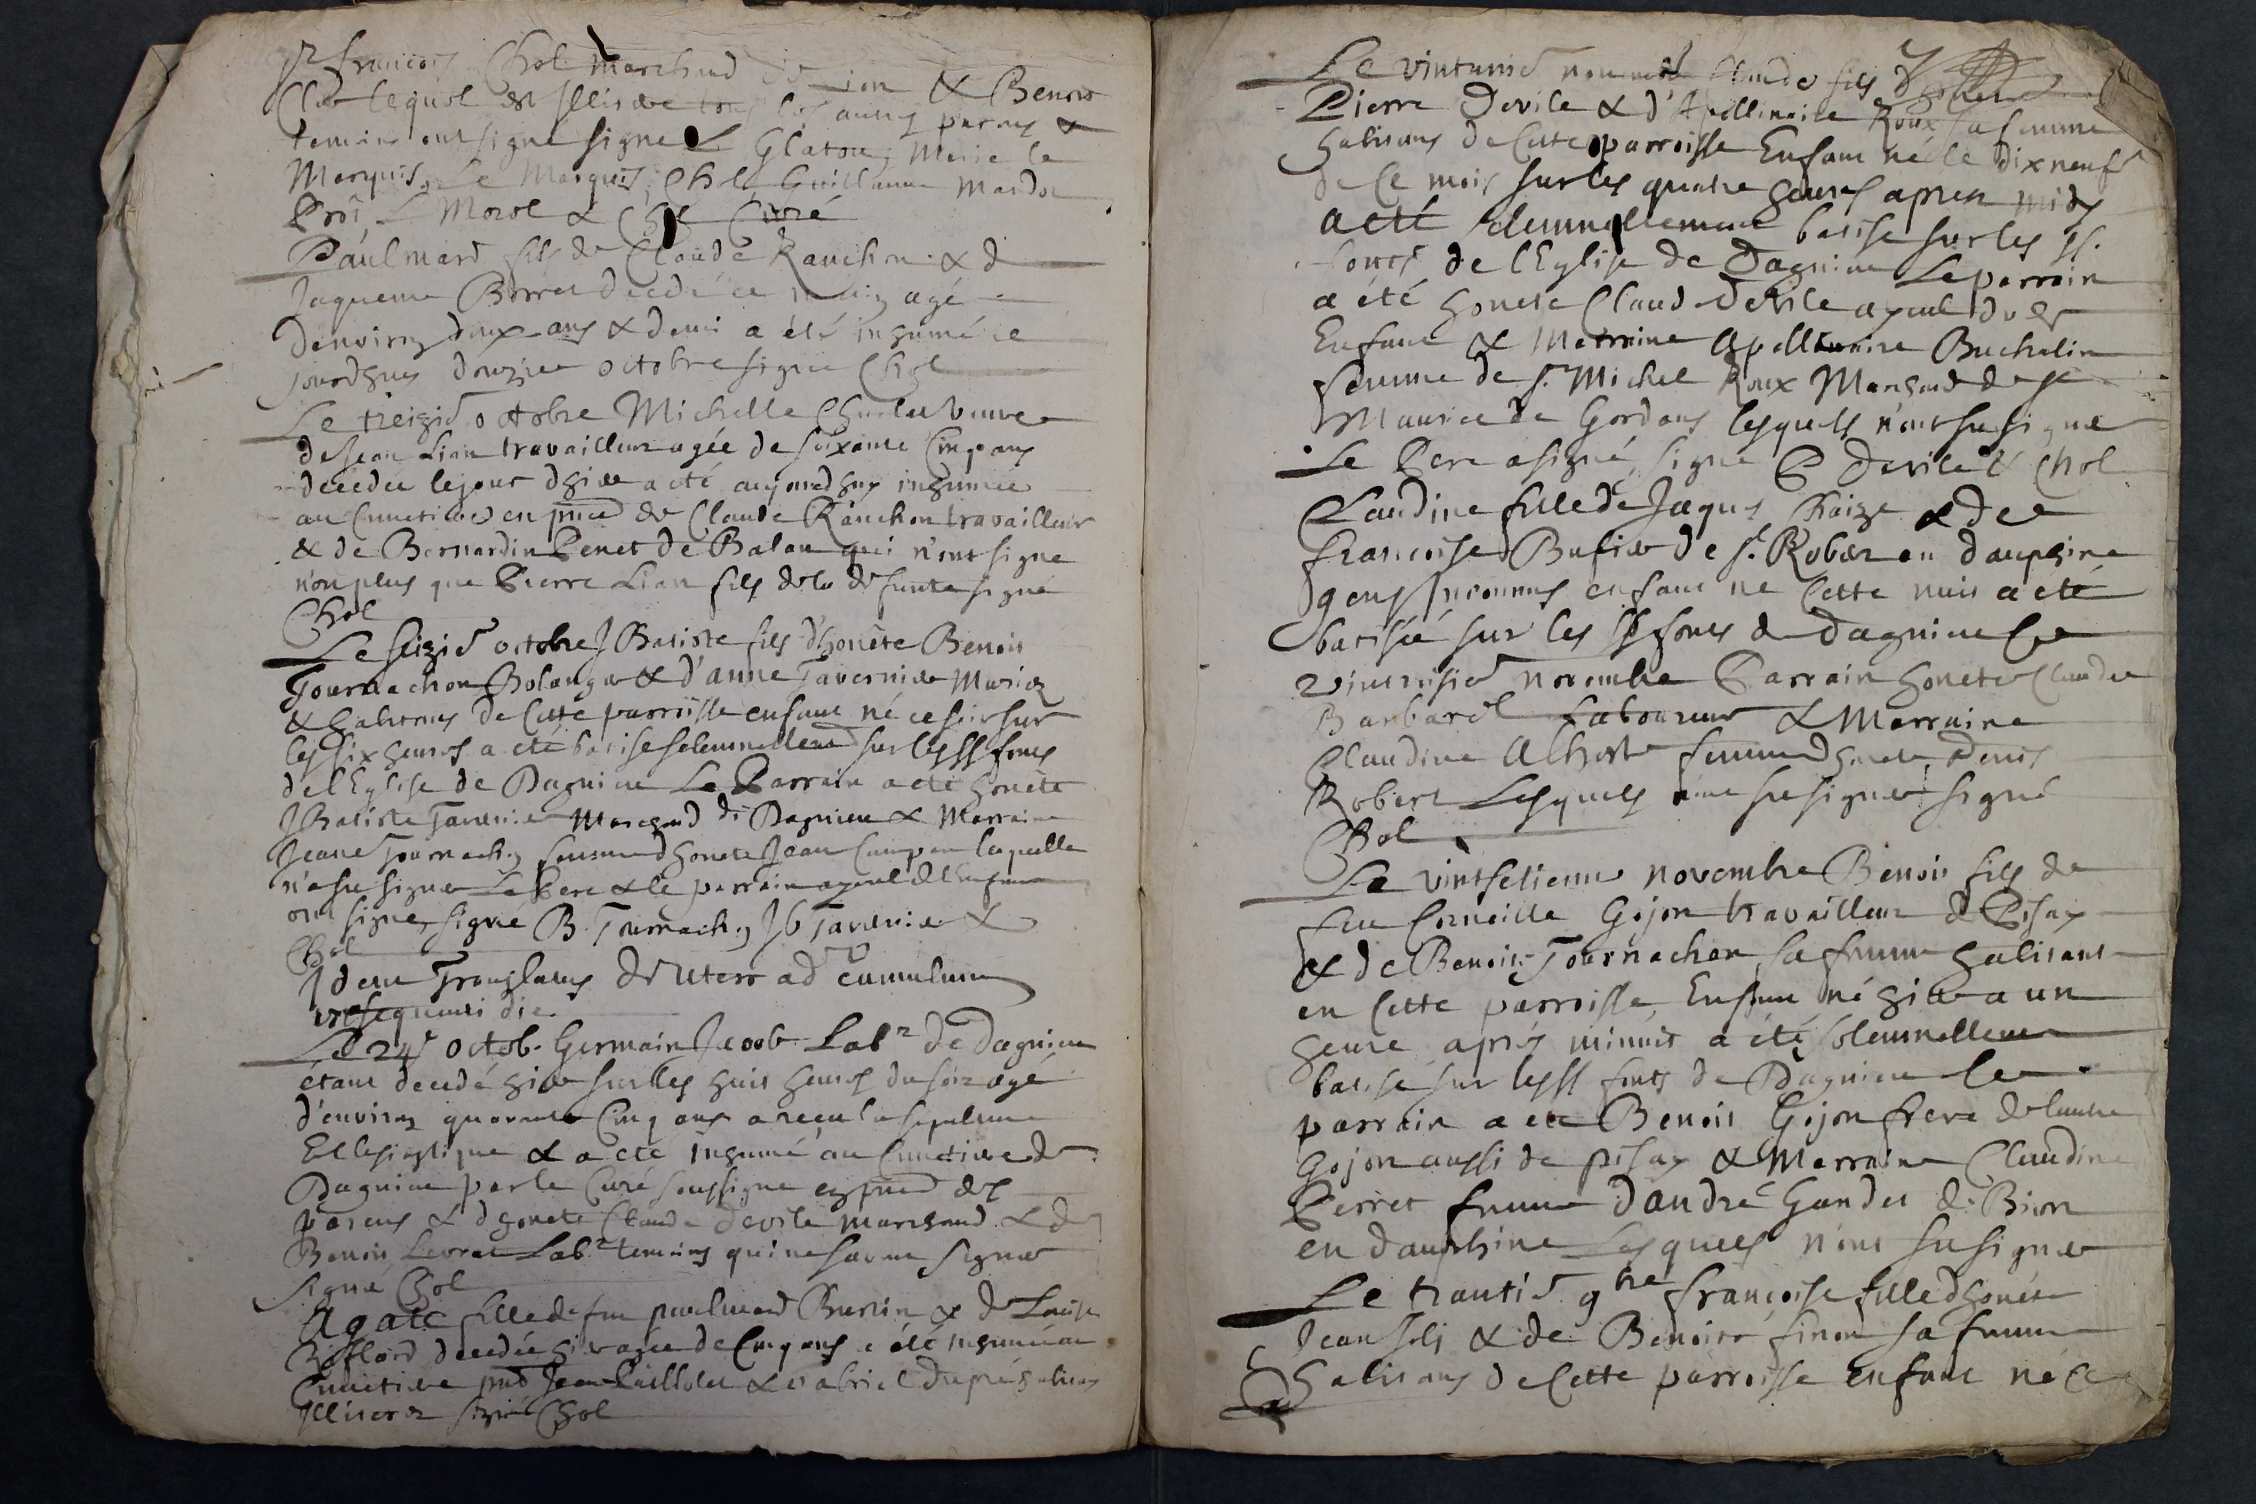 Sr francois Chol Marchand de & Benois
lequel est Illit tous les autres parens &
temoins ont signe signe L Glaton, Marie le
Marquis, Le Marquis, Chol Guillaume Mardon
Ptre, L Morel & Chol Curé
Paulmard fils de Claude Ranchon & d
Jaqueme Borret decedé ce matin agé
denviron deux ans & demi a été inhumé ce
jourdhuy douzie octobre signe Chol
Le treizie octobre Michelle veuve
de Jean Lian travailleur agée de soixante Cinq ans
decedée le jour dhier a eté aujourdhuy inhumée
au Cimetiere en pnce de Claude Ranchon travailleur
& de Bernardin Penet de Balan qui n'ont signe
non plus que Pierre Lian fils de la defunte signé
Chol
Le seizie octobre J Batiste fils d'honete Benois
Tournachon Bolanger & d'anne Tavernier Mariez
& habitans de Cette parroisse enfant né ce soir sur
les six heures a eté batise solemnellemt sur les SS fons
de l'Eglise de Dagnieu Le Parrain a eté honete
J Batiste Tavernier Marchand de Dagnieu & Marraine
Jeane Tournachon femme dhonete Jean laquelle
n'a su signer Le Pere & le parrain ayeul de l'Enfant
ont signe, signe B. Tournachon J b Tavernier &
Chol
Idem Translatus de utero ad tumulum
in sequenti die.
Le 24e octob. Germain Jacob Labr de Dagnieu
étant decedé hier sur les huit heures du soir agé
d'environ quarante Cinq ans a recu la sepulture
Ecclesiastique & a eté Inhumé au Cimetiere de
Dagnieu par le Curé soussigne en pnce des
parens & d honete Claude Devile marchand & de
Benois Levrat Labr temoins qui ne savent signer
signé Chol
Agate fille de feu paulmard Burtin & de Louise
decedée hier agée de Cinq ans a été inhumée au
Cimetiere pnt Jean & Gabriel Dupré habitans
Illiterez signé Chol
Le vintunie novembre Claude fils d honete
Pierre Devile & d'Apollinaire Roux sa femme
habitans de Cette parroisse Enfant né le dix neuf
de Ce mois sur les quatre heures apres midy
a eté solemnellement batise sur les SS.
fonts de l'Eglise de Dagnieu Le parrain
a été honete Claud Devile ayeul du dt
Enfant & Marraine Apollinaire Buchelin
femme de sr Michel Roux Marchand de St
Maurice de Gordans lesquels n'ont su signer
Le Pere a signé, signe P Devile & Chol
Claudine fille de Jaques Chaize & de
francoise Bufier de St Rober en dauphine
gens Inconnus enfant ne Cette nuit a eté
batisée sur les SS fonts de dagnieu Ce
vintroisie novembre Parrain honete Claude
Barbaret Laboureur & Marraine
Claudine Alhoste femme dhonete Denis
Robert Lesquels n'ont su signer signé
Chol
Le vintsetieme novembre Benois fils de
feu Corneille Gojon travailleur de Pisay
& de Benoite Tournachon sa femme habitans
en Cette parroisse, Enfant né hier a un
heure aprés minuit a été solemnellement
batisé sur les SS fonts de Dagnieu le
parrain a ete Benois Gojon frere de lautre
Gojon aussi de pisay & Marraine Claudine
Perret femme d'andré Gandet de Bion
en dauphine Lesquels n'ont su signer
Le trantie 9bre françoise fille dhonete
Jean Joli & de Benoite finon sa femme
habitans de Cette parroisse Enfant né Ce